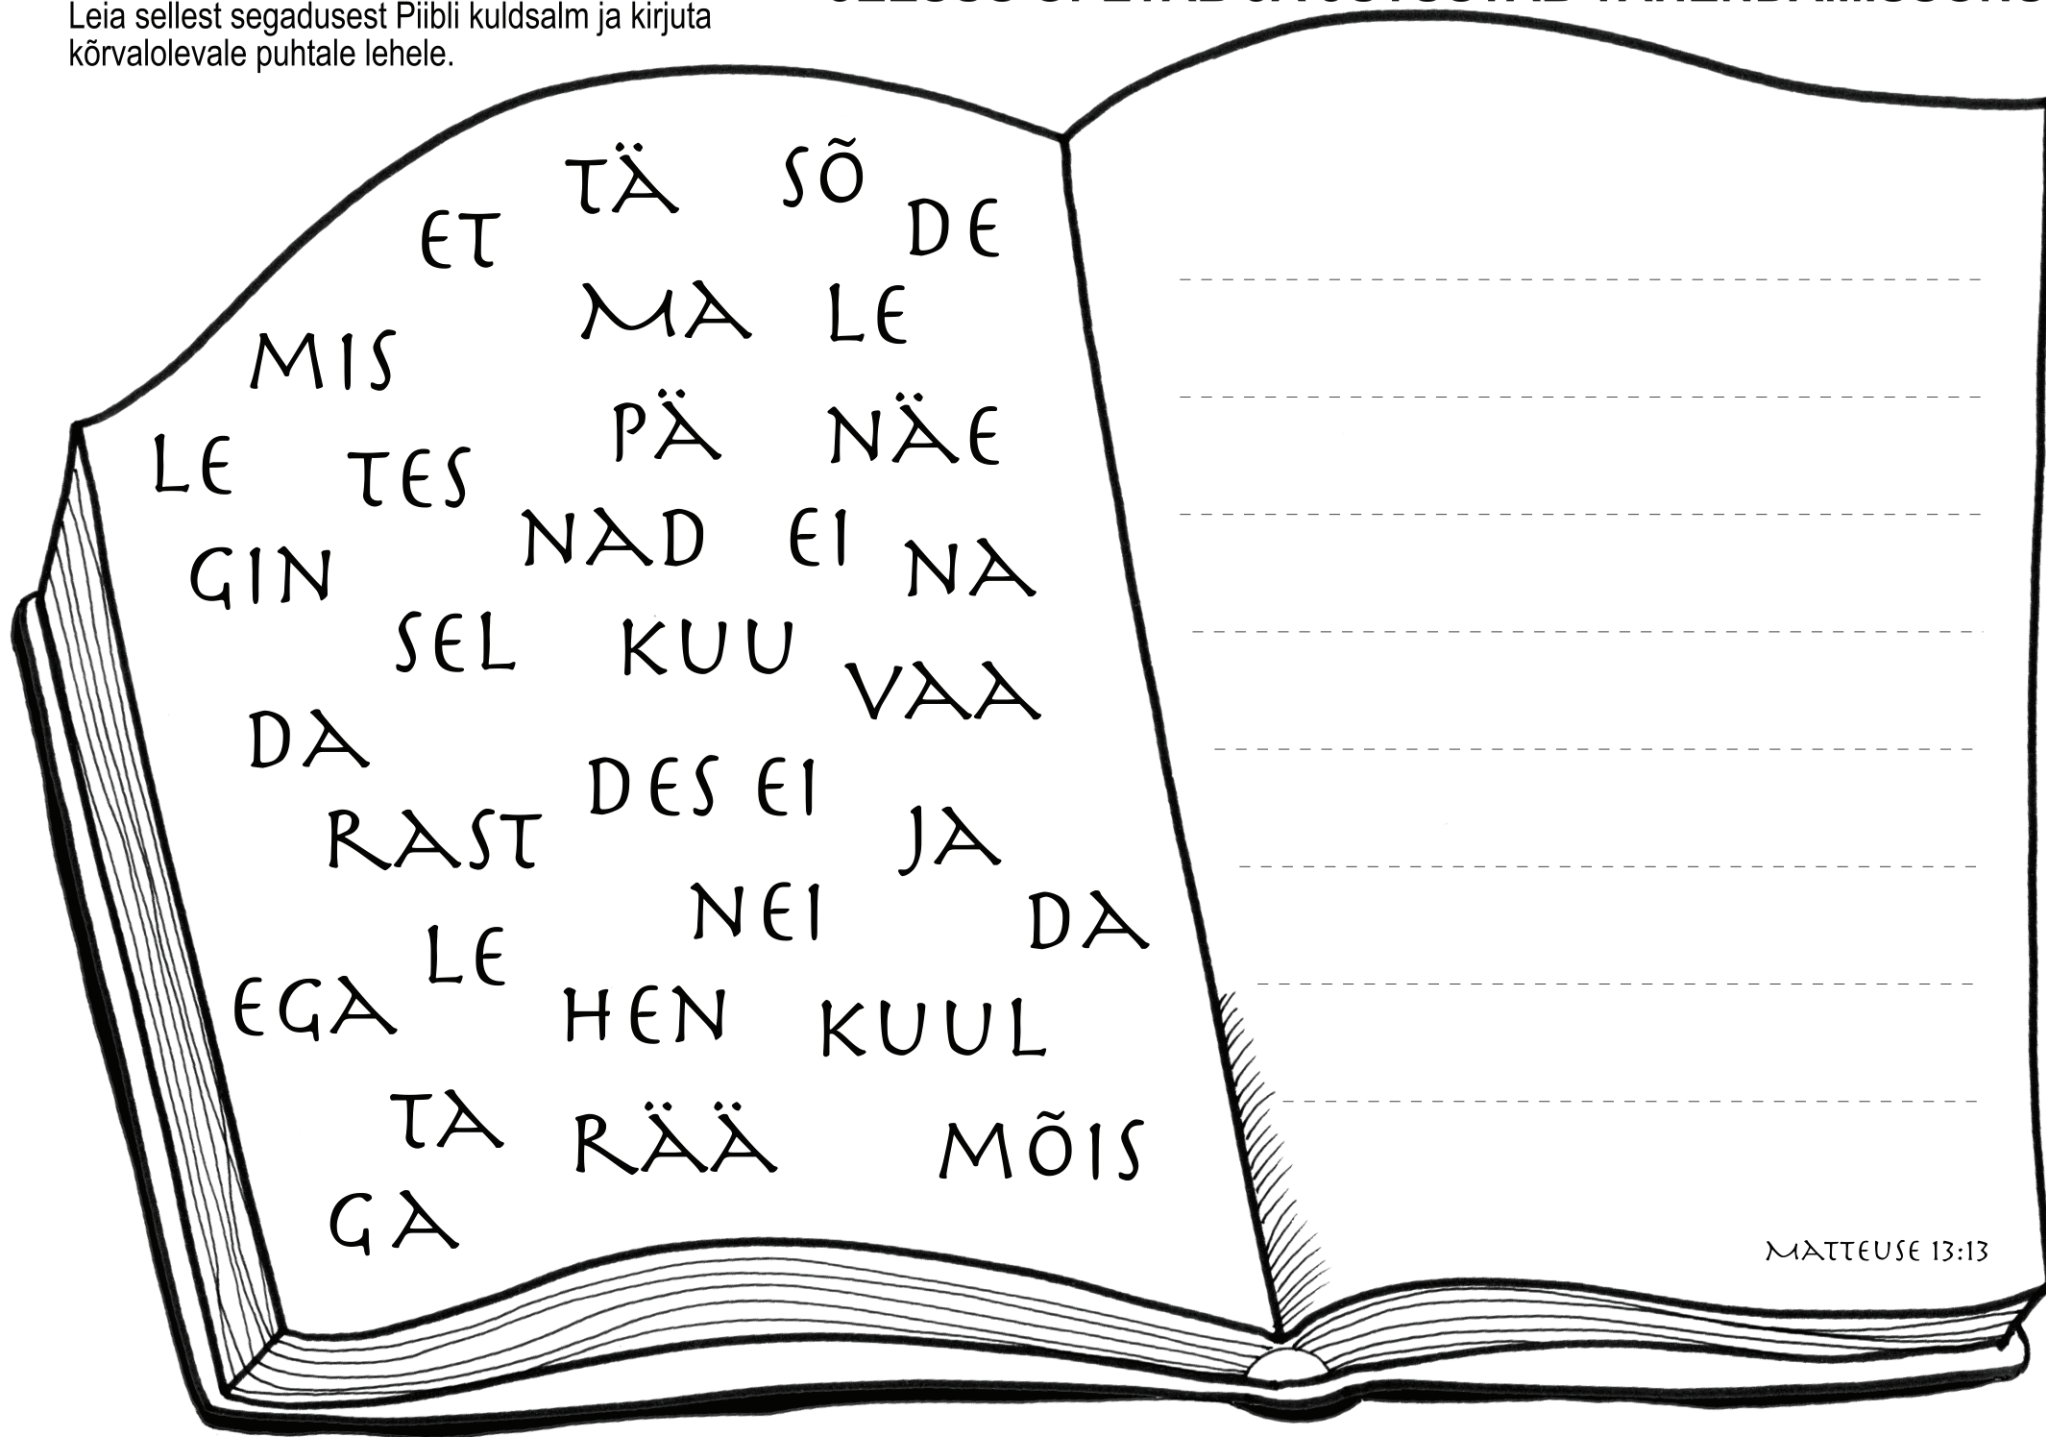 Leia sellest segadusest Piibli kuldsalm ja kirjuta
kõrvalolevale puhtale lehele.
TÄ SÕ
ET DE
MA LE
MIS
PÄ NÄE
LE TES
NAD EI NA
GIN
SEL KUU
VAA
DA
DES EI
RAST JA
NEI DA
LE
EGA HEN KUUL
TA RÄÄ MÕIS
GA
MATTEUSE 13:13